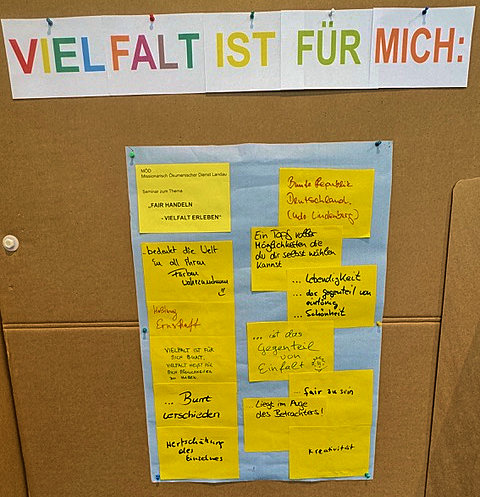 VIELFALT IST FÜR MICH:
MÖD
Missionarisch Ökumenischer Dienst Landau
Seminar zum Thema
„FAIR HANDELN
- VIELFALT ERLEBEN“
Bunte Republik
Deutschland.
(Udo Lindenberg)
bedeutet die Welt
in all ihren
Farben
wahrzunehmen
Ein Topf voller
Möglichkeiten die
du dir selbst wählen
kannst
... Lebendigkeit
... das Gegenteil von
eintönig
... Schönheit
Ernsthaft
... ist das
Gegenteil
von
Einfalt
VIELFALT IST FÜR
MICH BUNT.
VIELFALT HEIẞT FÜR
MICH
ZU HABEN
... fair zu sein
... Bunt
verschieden
Liegt im Auge
des Betrachters!
Wertschätzung
des
Einzelnen
Kreativität